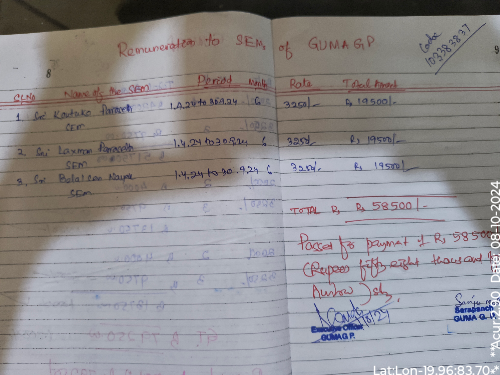 Remuneration to SEM, of GUMA GP
Code
103383837
8
9
Sl.No Name of the SEM Period Month Rate Total Amount
1. Sri Kartika 1.4.24 to 30.9.24 6 3250/- Rs 19500/-
SEM
2. Laxman 1.4.24 to 30.9.24 6 3250/- Rs 19500/-
SEM
3. Sri Balaram Nayak 1.4.24 to 30.9.24 6 3250/- Rs 19500/-
SEM
TOTAL Rs Rs 58500/-
Passed for payment of Rs 58500
(Rupees fifty eight thousand
hundred) only,
Executive Officer
GUMA G.P.
Sarapanch
GUMA G.P.
Date: 08-10-2024
Lat:Lon-19.96:83.70